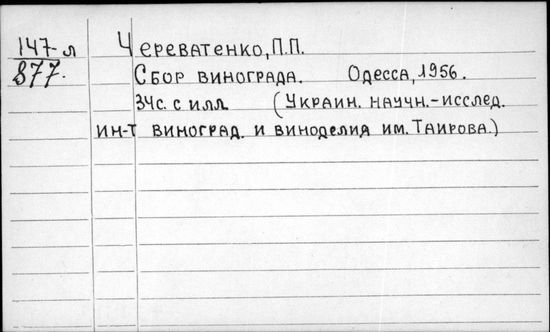 147 л Череватенко, П.П.
877. Сбор винограда. Одесса, 1956.
34с. с илл. (Украин. научн.-исслед.
ин-т виноград. и виноделия им. Таирова.)